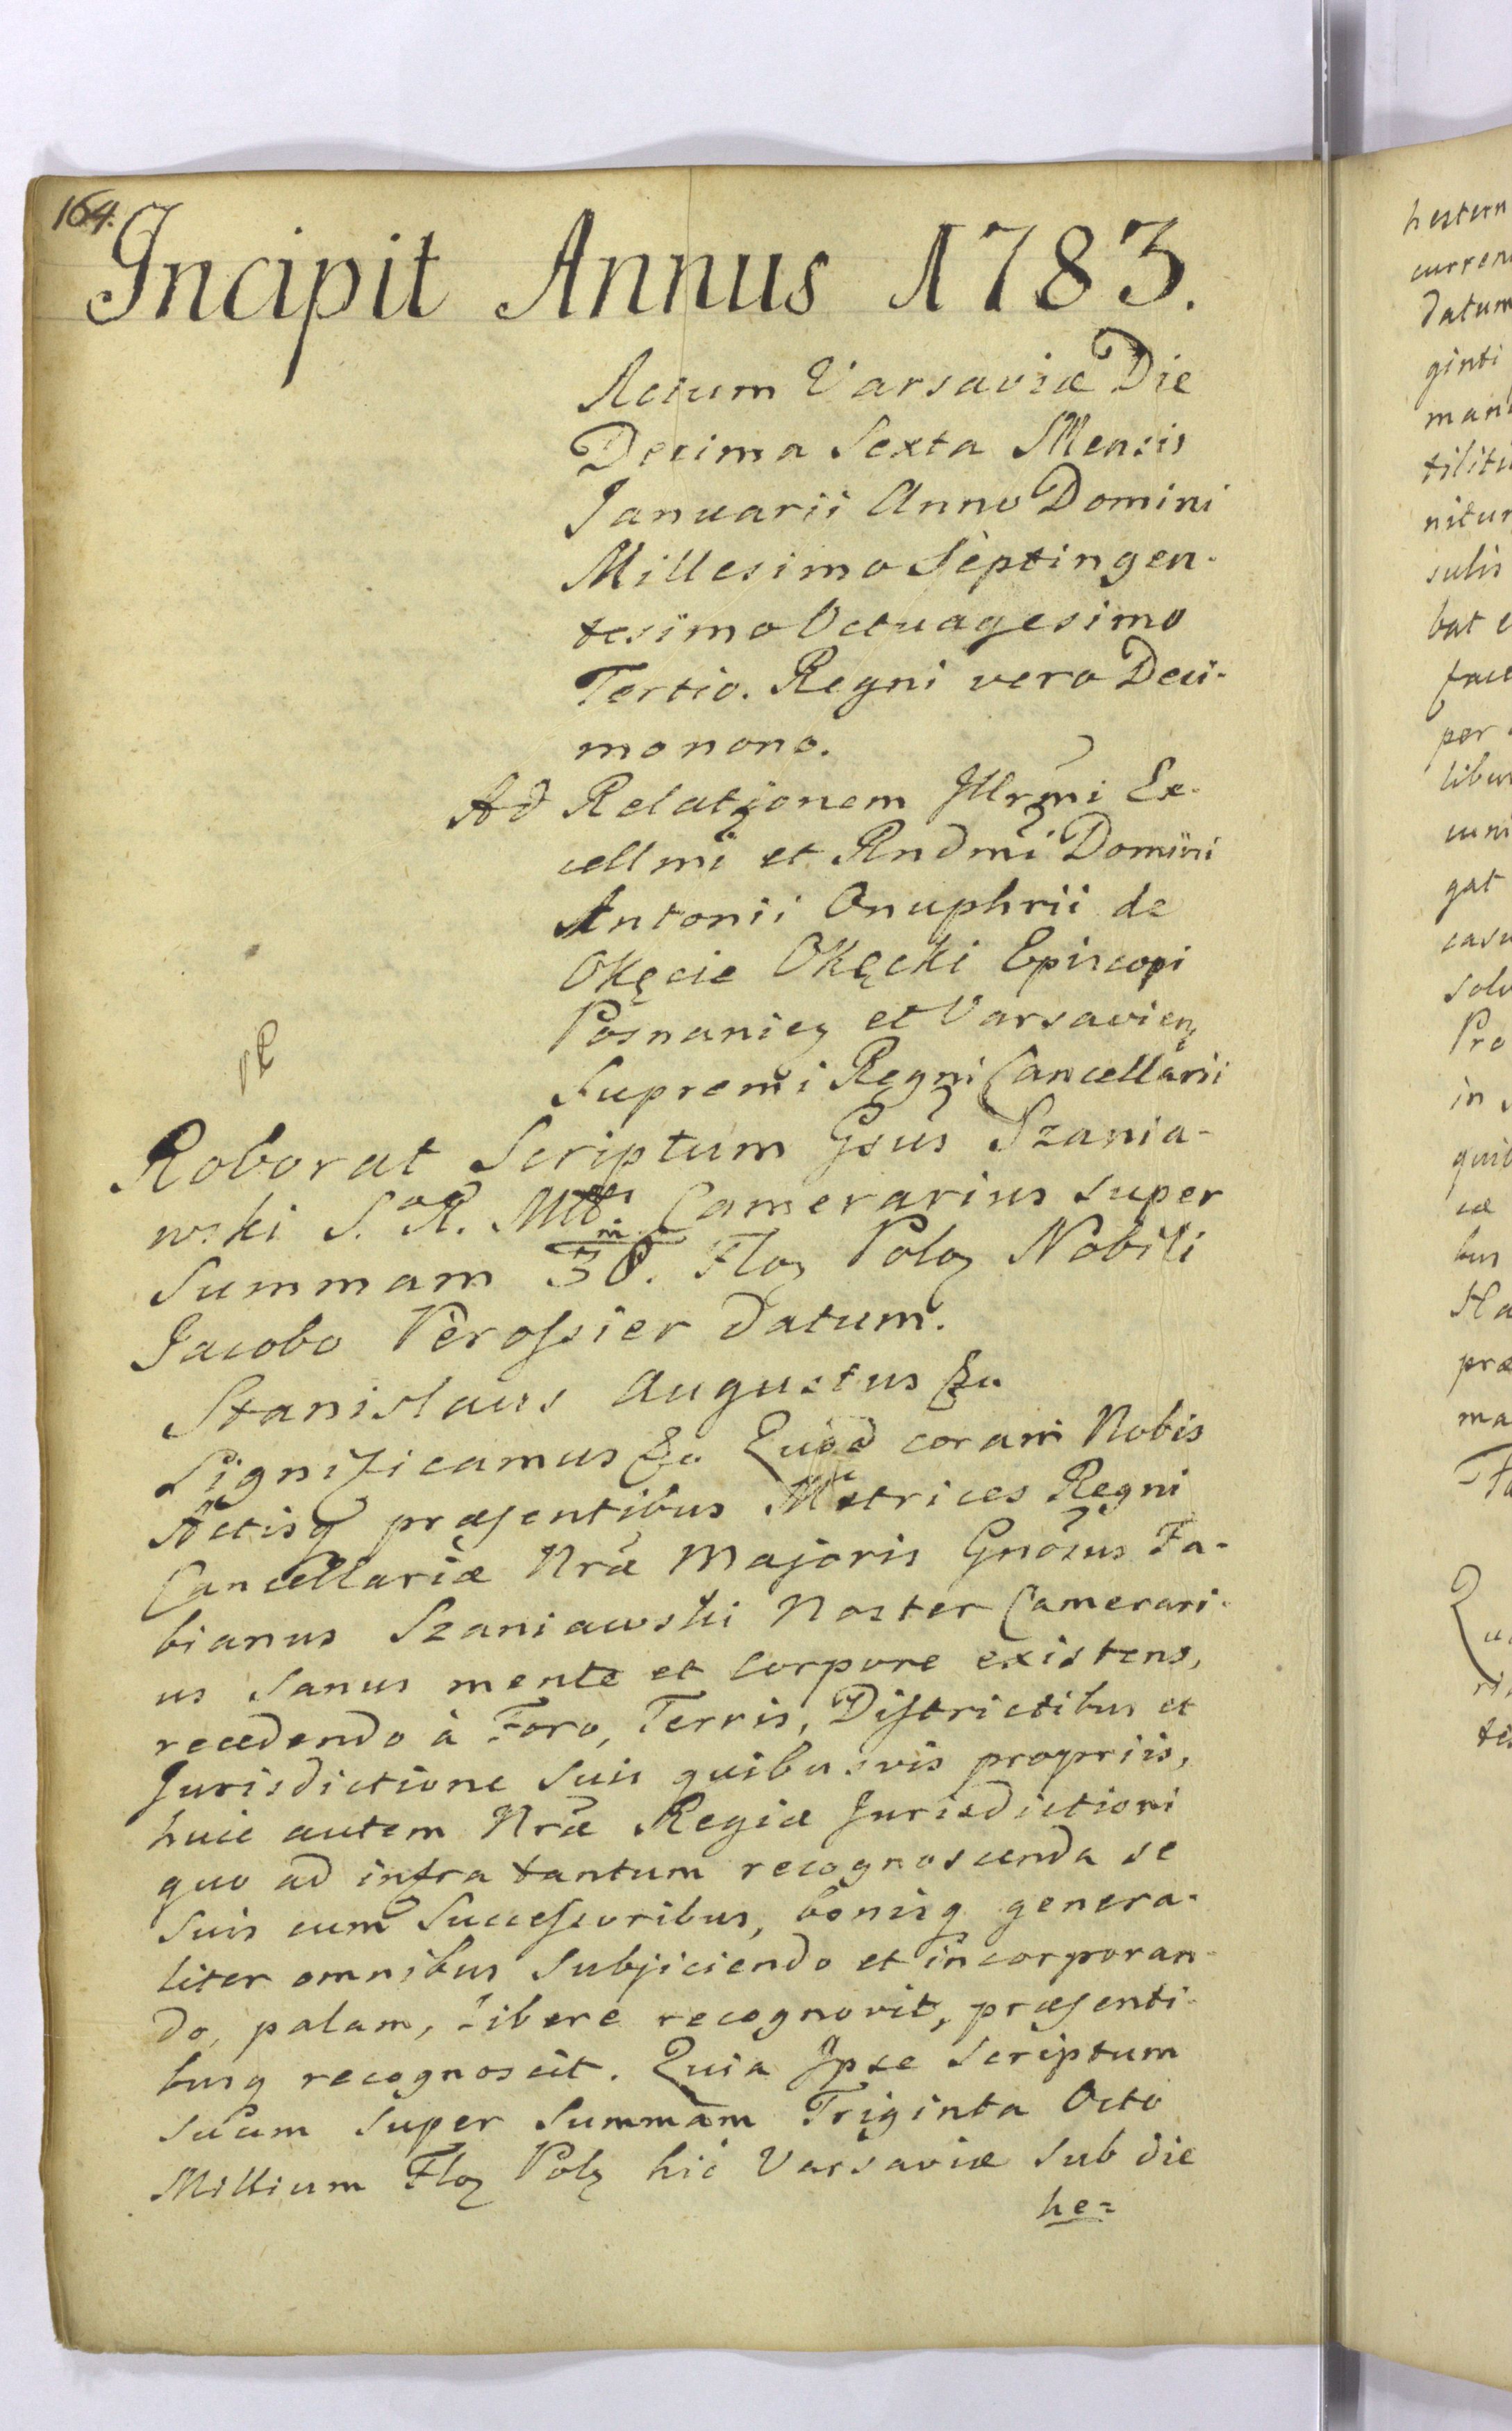 164.
Incipit Annus 1783.
Actum Varsaviæ Die
Decima Sexta Mensis
Januarii Anno Domini
Millesimo Septingen-
tesimo Octuagesimo
Tertio. Regni vero Deci-
monono.
Ad Relationem Illrmi Ex-
cellmi et Rndmi Domini
Antonii Onuphrii de
Okęcie Okęcki Episcopi
Posnanien et Varsavien
Supremi Regni Cancellarii
Roborat Scriptum Gsus Szania-
wski S. R. Mttis Camerarius super
Summam 38. Flo Polo Nobili
Jacobo Verossier Datum.
Stanislaus Augustus &c
Significamus &c Quod coram Nobis
Actisq præsentibus Metrices Regni
Cancellariæ Nræ Majoris Gnosus Fa-
bianus Szaniawski Noster Camerari-
us Sanus mente et Corpore existens,
recedendo à Foro, Terris, Districtibus et
Jurisdictione Suis quibusvis propriis,
huic autem Nræ Regiæ Jurisdictioni
quo ad infra tantum recognoscenda se
Suis cum Successoribus, bonisq genera-
liter omnibus Subjiciendo et incorporan-
do, palam, Libere recognovit, præsenti-
busq recognoscit. Quia Ipse Scriptum
suum super Summam Triginta Octo
Millium Flo Pol hic Varsaviæ Sub die
he=
hestern
curren
datum
ginti
man
tilitu
nitur
sulis
bat
face
per
libus
cuni
gat
casu
Solu
Pro
in
quib
cæ
bus
Ha
præ
ma